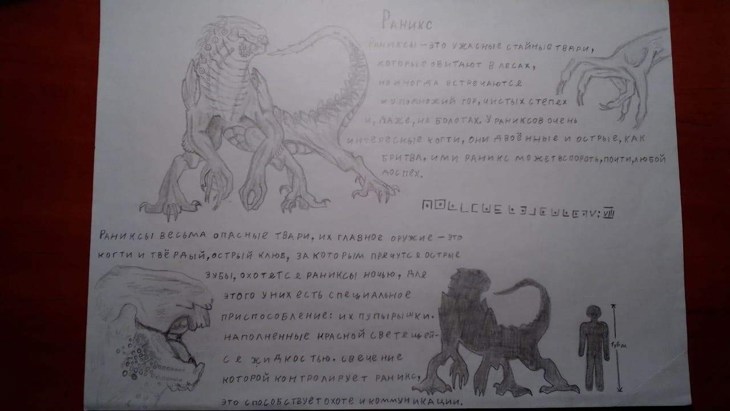 Раникс
Раниксы - это ужасные стайные твари,
которые обитают в лесах,
но иногда встречаются
у подножий гор, чистых степях
и, даже, на болотах. У раниксов очень
интересные когти, они двойные и острые, как
бритва, ими раникс может вспороть, почти, любой
доспех.
Раниксы весьма опасные твари, их главное оружие - это
когти и твёрдый, острый клюв, за которым прячутся острые
зубы, охотятся раниксы ночью, для
этого у них есть специальное
приспособление: их пупырышки.
наполненные красной светящей-
ся жидкостью. свечение
которой контролирует раникс,
это способствует охоте и коммуникации.